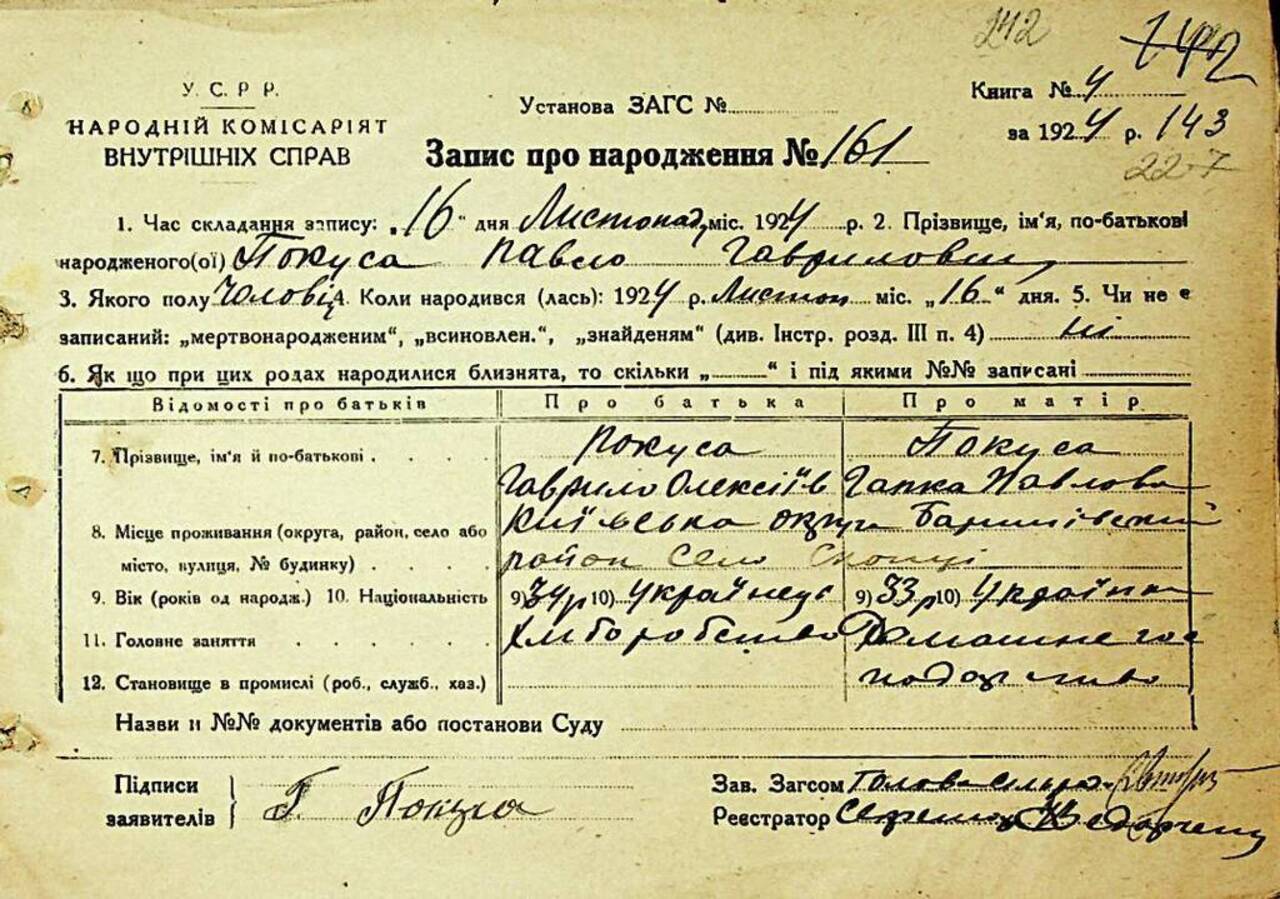 242
742
У. С. Р Р.
НАРОДНІЙ КОМІСАРІЯТ
ВНУТРІШНІХ СПРАВ
Установа ЗАГС №
Книга № 4
за 1924 р. 143
227
Запис про народження № 161
1. Час складання запису: „16" дня Листопад міс. 1924 р. 2. Прізвище, ім'я, по-батькові
народженого(ої) Покуса Павло Гаврилович
3. Якого полу Чоловіч 4. Коли народився (лась): 1924 р. Листоп міс. „16" дня. 5. Чи не є
записаний: „мертвонародженим", „всиновлен.", „знайденям" (див. Інстр. розд. III п. 4) ні
6. Як що при цих родах народилися близнята, то скільки „ " і під якими №№ записані
Відомості про батьків Про батька Про матір
7. Прізвище, ім'я й по-батькові Покуса Покуса
Гаврило Олексіїв Гапка Павлова
8. Місце проживання (округа, район, село або Київська округа Баришівский
місто, вулиця, № будинку) район Село Скопці
9. Вік (років од народж.) 10. Національність 9) 34 р 10) Українець 9) 33 р 10) Українка
11. Головне заняття Хліборобство Домашне гос
12. Становище в промислі (роб., служб., хаз.) подарство
Назви и №№ документів або постанови Суду
Підписи
заявителів
Г. Покуса
Зав. Загсом Голова сільра
Реєстратор